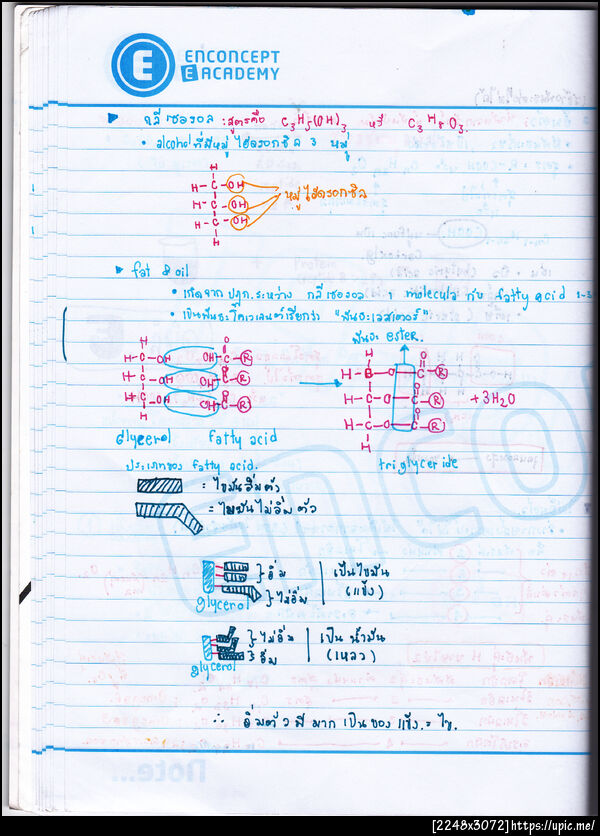 ENCONCEPT
E ACADEMY
กลีเซอรอล : สูตรคือ C₃H₅(OH)₃ หรื C₃H₈O₃.
• alcohol ที่มีหมู่ ไฮดรอกซิล 3 หมู่
H
H – C – OH
H – C – OH หมู่ไฮดรอกซิล
H – C – OH
H
fat & oil
• เกิดจาก ปฏก.ระหว่าง กลีเซอรอล 1 molecule กับ fatty acid 1-3
• เป็นพันธะโคเวเลนต์เรียกว่า "พันธะเอสเตอร์"
พันธะ ester.
H
H – C – OH OH – C – R
H – C – OH OH – C – R
H – C – OH OH – C – R
H
H O
H – C – O – C – R
O
H – C – O – C – R + 3H₂O
O
H – C – O – C – R
H
glycerol fatty acid triglyceride
ประเภทของ fatty acid.
= ไขมันอิ่มตัว
= ไขมันไม่อิ่มตัว
} อิ่ม เป็นไขมัน
} ไม่อิ่ม (แข็ง)
glycerol
} ไม่อิ่ม เป็น น้ำมัน
} อิ่ม (เหลว)
glycerol
∴ อิ่มตัว มี มาก เป็นของแข็ง = ไข.
ENCO
[2248x3072]https://upic.me/